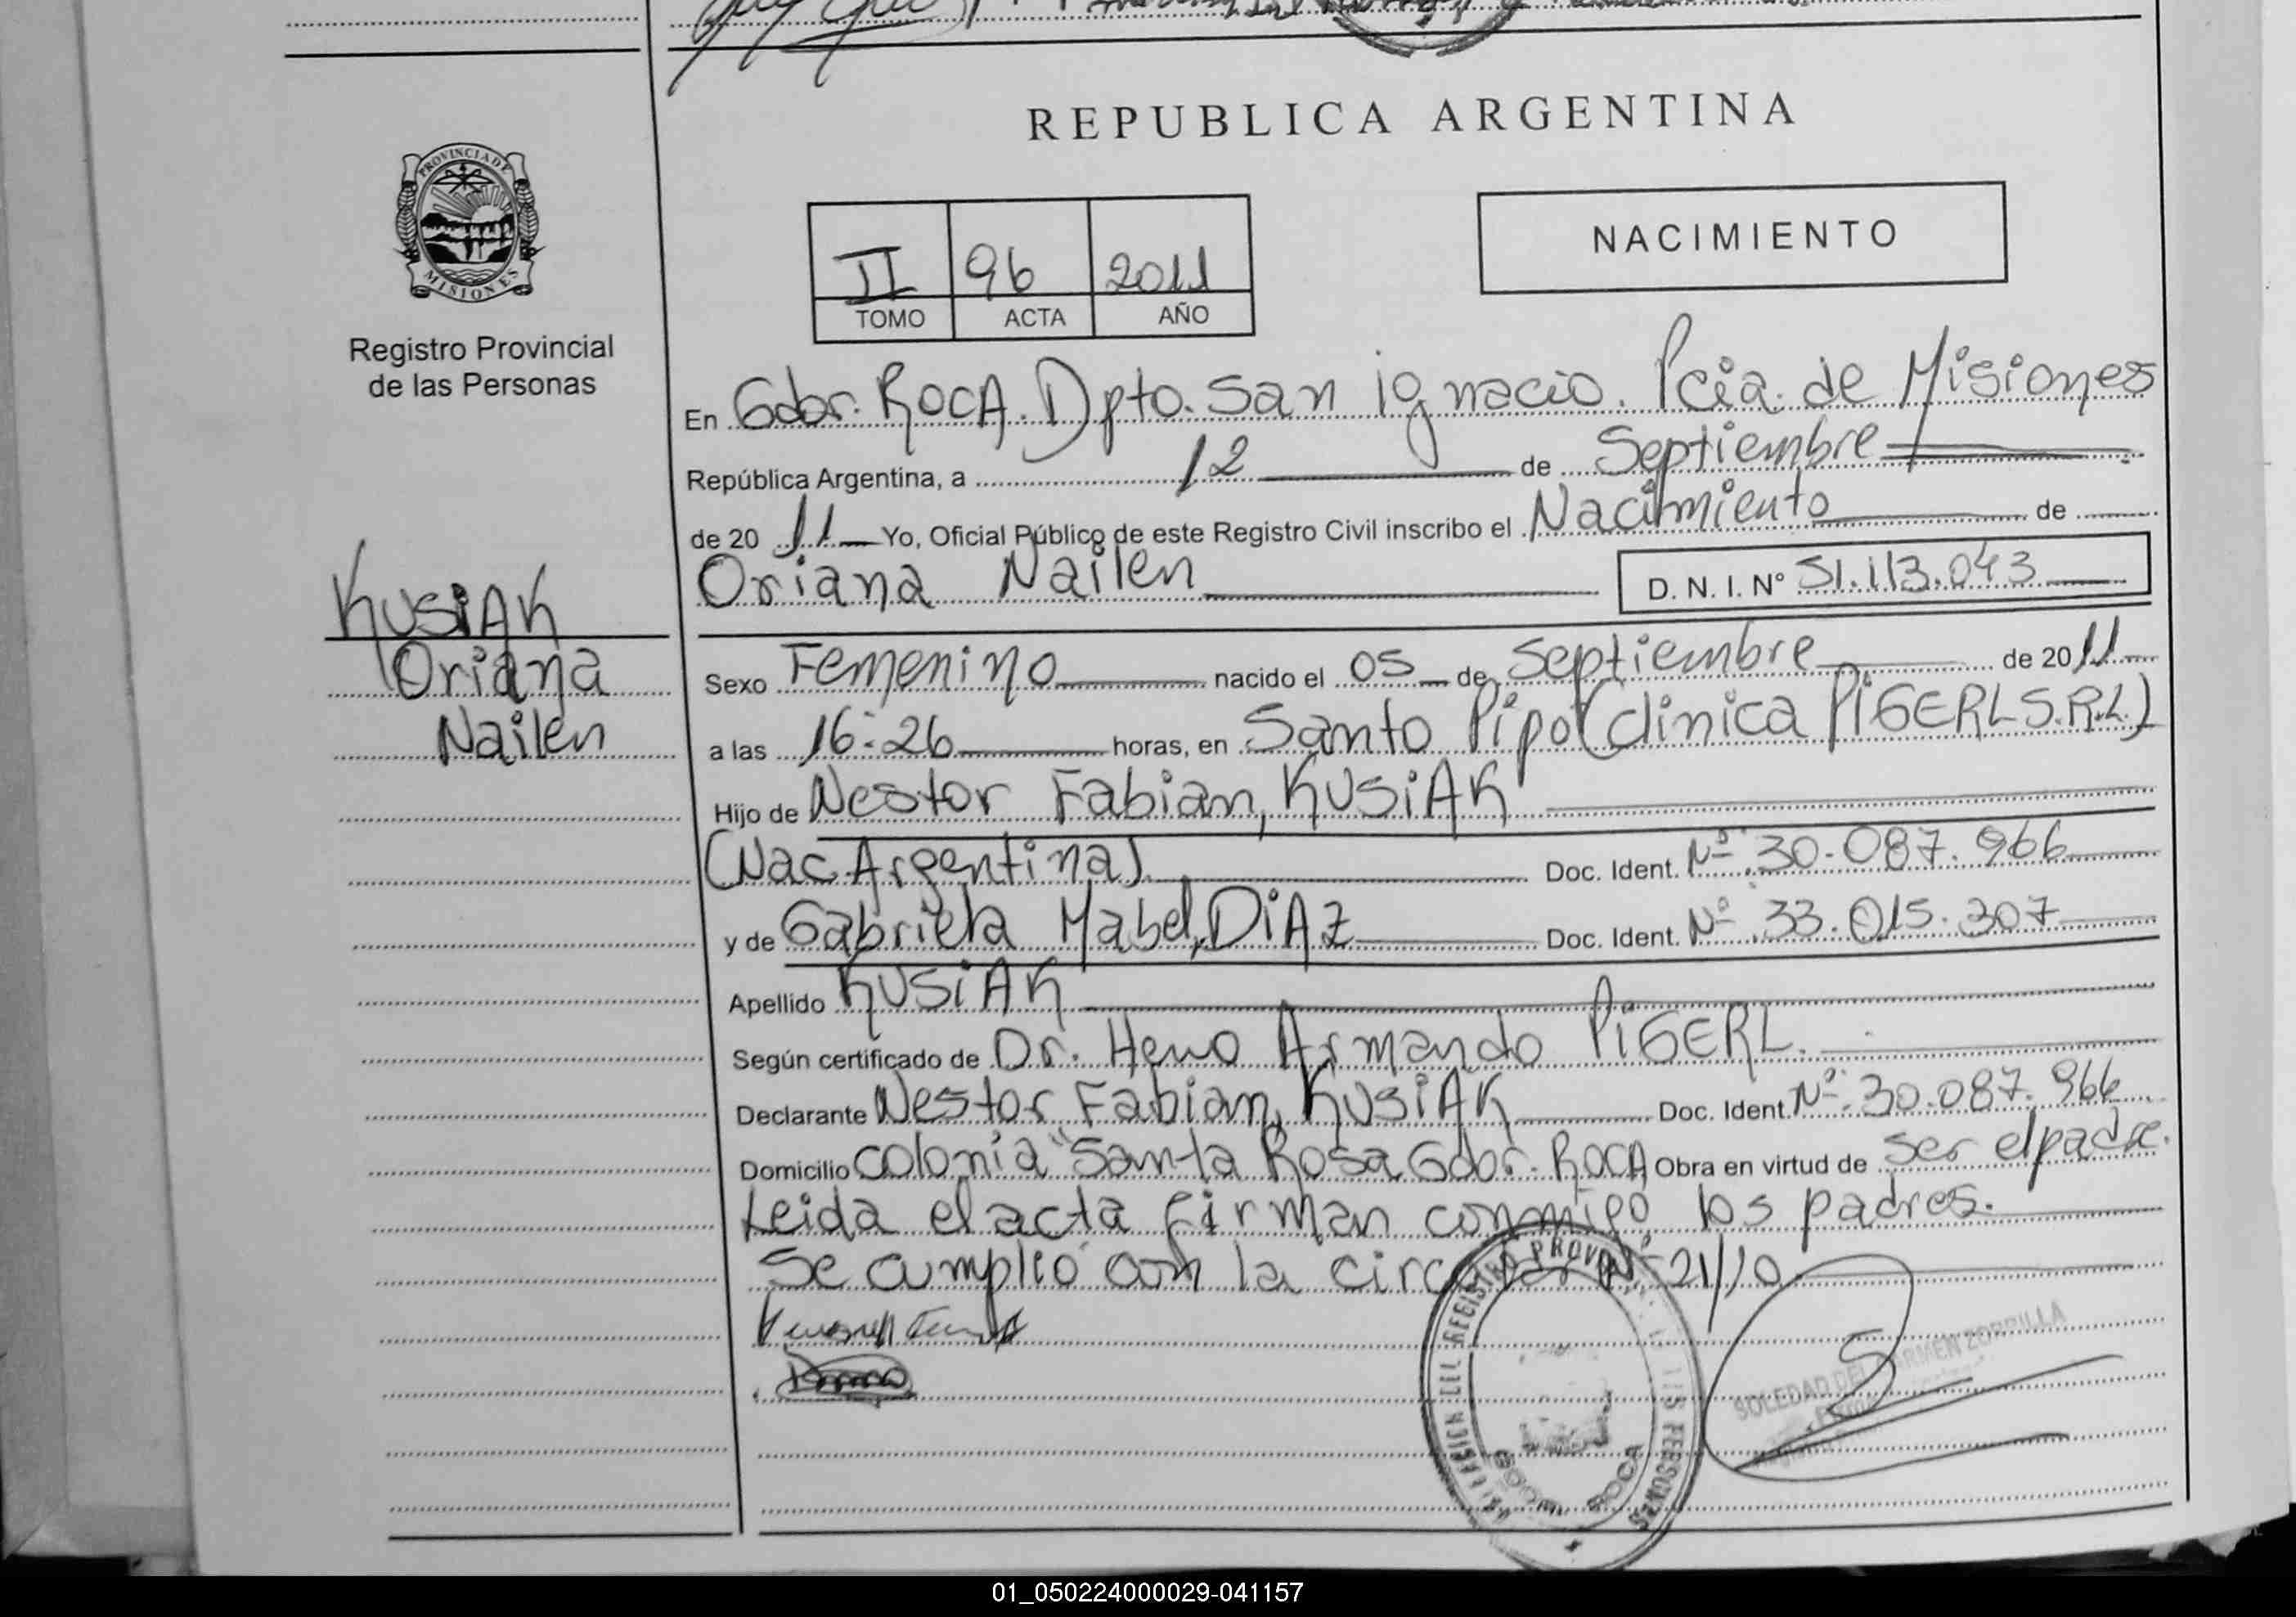 REPUBLICA ARGENTINA
PROVINCIA DE
MISIONES
Registro Provincial
de las Personas
II 96 2011
TOMO ACTA AÑO
NACIMIENTO
En Gdor. ROCA. Dpto. San Ignacio. Pcia. de Misiones
República Argentina, a 12 de Septiembre
de 20 11 Yo, Oficial Público de este Registro Civil inscribo el Nacimiento de
Oriana Nailen D. N. I. N° 51.113.043
KUSIAK
Oriana
Nailen
Sexo Femenino nacido el 05 de Septiembre de 20 11
a las 16:26 horas, en Santo Pipo (Clinica PIGERL S.R.L.)
Hijo de Nestor Fabian, KUSIAK
(Nac. Argentina) Doc. Ident. Nº 30.087.966
y de Gabriela Mabel, DIAZ Doc. Ident. Nº 33.015.307
Apellido KUSIAK
Según certificado de Dr. Armando PIGERL.
Declarante Nestor Fabian, KUSIAK Doc. Ident. Nº 30.087.966
Domicilio Colonia "Santa Rosa Gdor. ROCA Obra en virtud de ser el padre.
Leida el acta firman conmigo, los padres.
Se cumplió con la circular Nº 21/10
REGISTRO PROVINCIAL
LAS PERSONAS
ROCA
SOLEDAD DEL CARMEN ZORRILLA
01_050224000029-041157